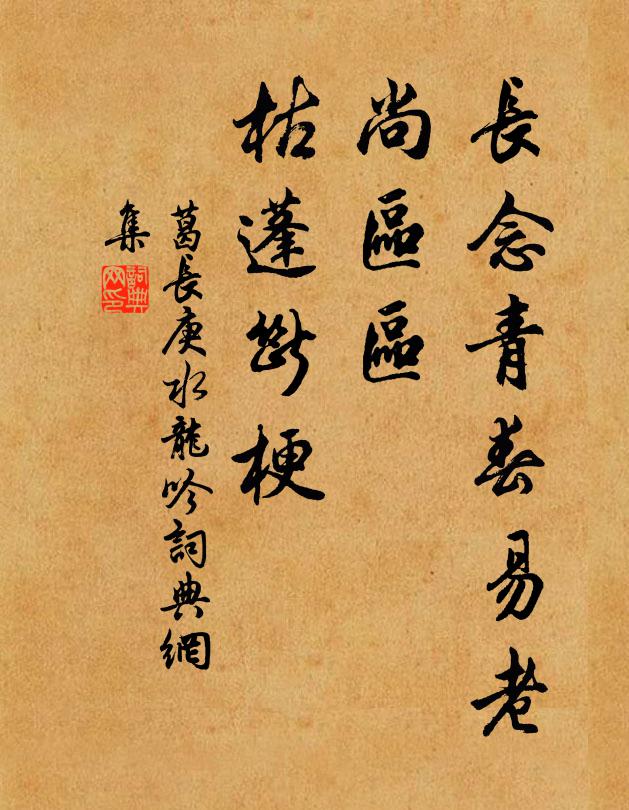 長念青春易老
尚區區
枯蓬斷梗
葛長庚水龍吟詞典網
集
詞典網印